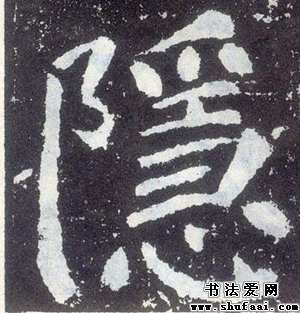 隱
书法爱网
www.shufaai.com